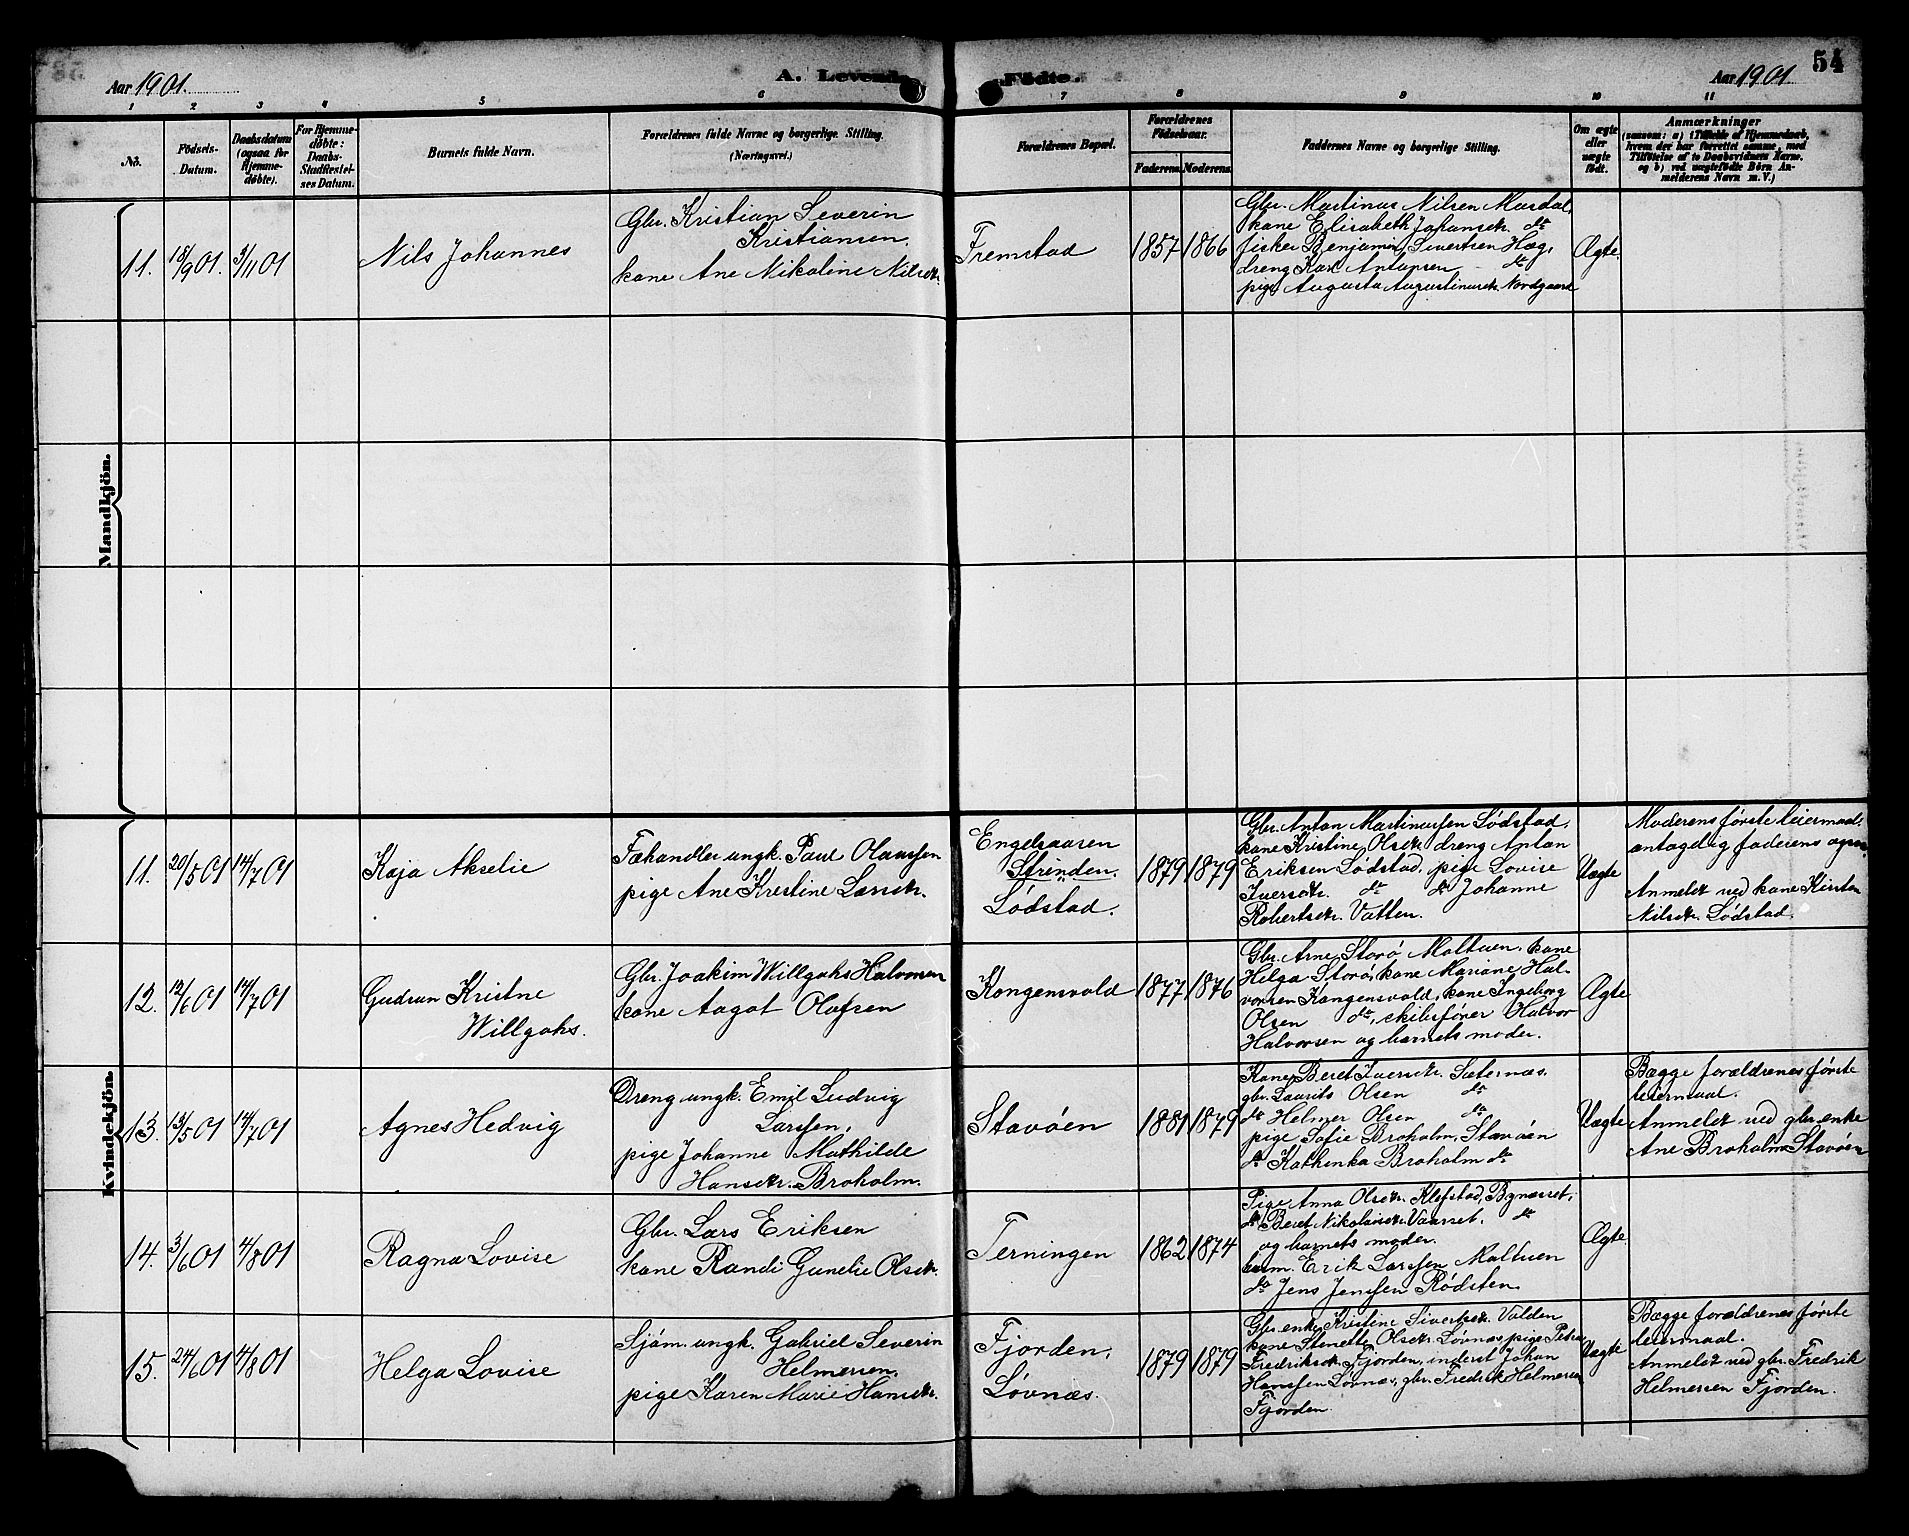 54
Aar 1901.
A. Levende
Födte.
Aar 1901
1 2 3 4 5 6 7 8 9 10 11
No.
Födsels-
Datum.
Daabsdatum
(ogsaa for
Hjemme-
döbte).
For Hjemme-
döbte:
Daabs-
Stadfæstel-
ses Datum.
Barnets fulde Navn.
Forældrenes fulde Navne og borgerlige Stilling.
(Næringsvei.)
Forældrenes Bopæl.
Forældrenes
Födselsaar.
Faderens. Moderens.
Faddernes Navne og borgerlige Stilling.
Om ægte
eller
uægte
födt.
Anmærkninger
(saasom: a) i Tilfælde af Hjemmedaab,
hvem der har forrettet samme, med
Tilföielse af to Daabsvidners Navne,
og b) ved uægtefödte Börn An-
melderens Navn m. V.)
Mandkjön.
11.
18/9 01.
3/11 01
Nils Johannes
Gbr. Kristian Severin
Kristiansen.
kone Ane Nikoline Nilsdtr.
Fremstad
1857
1866
Gbr. Martinus Nilsen Mardal.
kone Elisabeth Johansdtr. do
fisker Benjamin Sivertsen Hæg,
dreng Karl Antonsen do
pige Augusta Augustinusdtr. Nordgaard
Ægte.
Kvindekjön.
11.
20/5 01
14/7 01
Kaja Akselie
Fæhandler ungk. Paul Olaussen
pige Ane Kristine Larsdtr.
Engelsaaren
Strinden.
Lødstad.
1879
1879
Gbr. Anton Martinussen Lødstad.
kone Kristine Olsdtr. dreng Anton
Eriksen Lødstad, pige Lovise
Iversdtr. do do Johanne
Robertsdtr. Vatten.
Uægte
Moderens første leiermaal.
antagelig faderens ogsaa.
Anmeldt ved kone Kirsten
Nilsdtr. Lødstad.
12.
12/6 01
14/7 01
Gudrun Kristne
Willgohs.
Gbr. Joakim Willgohs Halvorsen
kone Aagot Olafsen
Kongensvold
1877
1876
Gbr. Arne Storø Maltuen, kone
Helga Storø, kone Mariane Hal-
vorsen Kongensvold, kone Ingeborg
Olsen do, skibsfører Halvor
Halvorsen og barnets moder.
Ægte
13.
13/5 01
14/7 01
Agnes Hedvig
Dreng ungk. Emil Ludvig
Larssen,
pige Johanne Mathilde
Hansdtr. Broholm.
Stavøen
1881
1879
Kone Beret Iversdtr. Sæternæs.
gbr. Laurits Olsen do
do Helmer Olsen do
pige Sofie Broholm, Stavøen
do Kathenka Broholm do
Uægte
Begge forældrenes første
leiermaal.
Anmeldt ved gbr. enke
Ane Broholm Stavøen
14.
3/6 01
4/8 01
Ragna Lovise
Gbr. Lars Eriksen
kone Randi Gunelie Olsdtr.
Terningen
1862
1874
Pige Anna Olsdtr. Klefstad, Bynesset,
do Beret Nikolaisdtr. Vaarset. do
og barnets moder.
husm. Erik Larssen Maltuen
do Jens Jenssen Rødsten.
Ægte
15.
24/6 01
4/8 01
Helga Lovise
Sjöm. ungk. Gabriel Severin
Helmersen.
pige Karen Marie Hansdtr.
Fjorden,
Løvnæs.
1879
1879
Gbr. enke Kristine Sivertsdtr. Valden
kone Stenette Olsdtr. Løvnæs, pige Petra
Fredriksdtr. Fjorden, inderst Johan
Hanssen Løvnæs, gbr. Fredrik Helmersen
Fjorden.
Uægte
Begge forældrenes første
leiermaal.
Anmeldt ved gbr. Fredrik
Helmersen Fjorden.